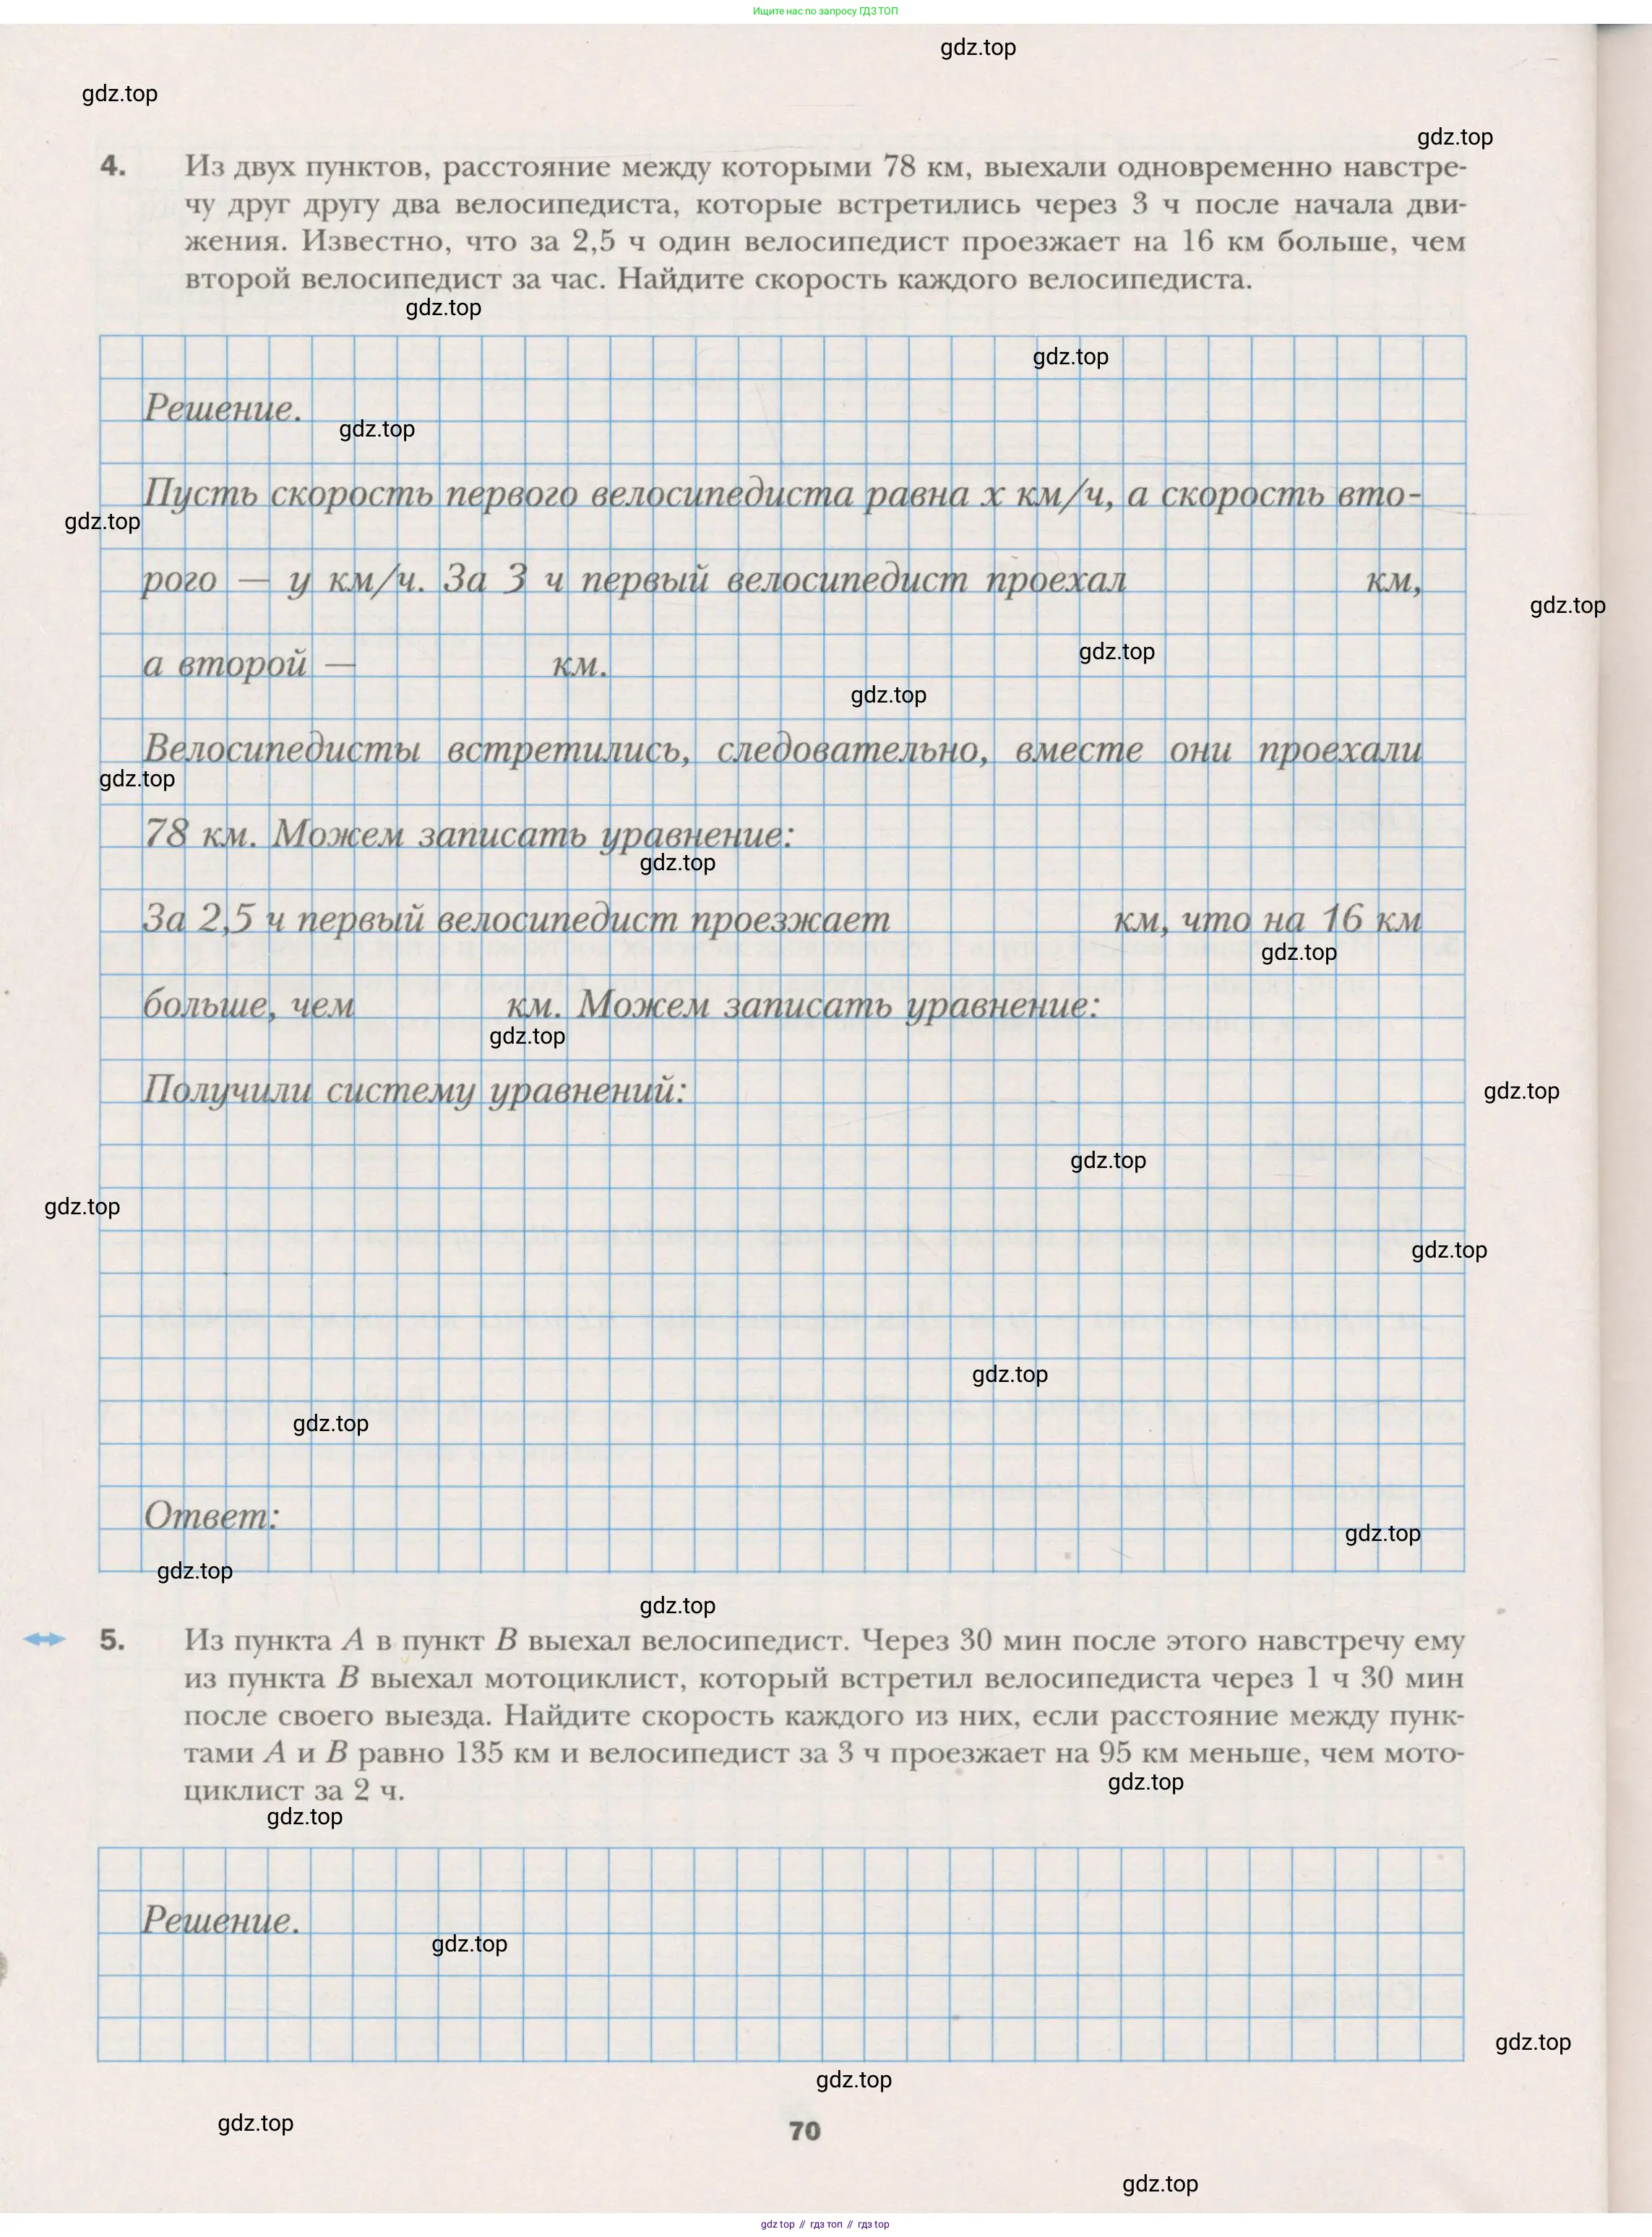 Ищите нас по запросу ГДЗ ТОП
gdz.top
gdz.top
gdz.top
4. Из двух пунктов, расстояние между которыми 78 км, выехали одновременно навстре-
чу друг другу два велосипедиста, которые встретились через 3 ч после начала дви-
жения. Известно, что за 2,5 ч один велосипедист проезжает на 16 км больше, чем
второй велосипедист за час. Найдите скорость каждого велосипедиста.
gdz.top
gdz.top
Решение.
gdz.top
Пусть скорость первого велосипедиста равна x км/ч, а скорость вто-
gdz.top
рого — y км/ч. За 3 ч первый велосипедист проехал км,
gdz.top
а второй — км.
gdz.top
gdz.top
Велосипедисты встретились, следовательно, вместе они проехали
gdz.top
78 км. Можем записать уравнение:
gdz.top
За 2,5 ч первый велосипедист проезжает км, что на 16 км
gdz.top
больше, чем км. Можем записать уравнение:
gdz.top
Получили систему уравнений:
gdz.top
gdz.top
gdz.top
gdz.top
gdz.top
gdz.top
Ответ:
gdz.top
gdz.top
gdz.top
5. Из пункта A в пункт B выехал велосипедист. Через 30 мин после этого навстречу ему
из пункта B выехал мотоциклист, который встретил велосипедиста через 1 ч 30 мин
после своего выезда. Найдите скорость каждого из них, если расстояние между пунк-
тами A и B равно 135 км и велосипедист за 3 ч проезжает на 95 км меньше, чем мото-
циклист за 2 ч.
gdz.top
gdz.top
Решение.
gdz.top
gdz.top
gdz.top
gdz.top
70
gdz.top
gdz.top // гдз топ // гдз top